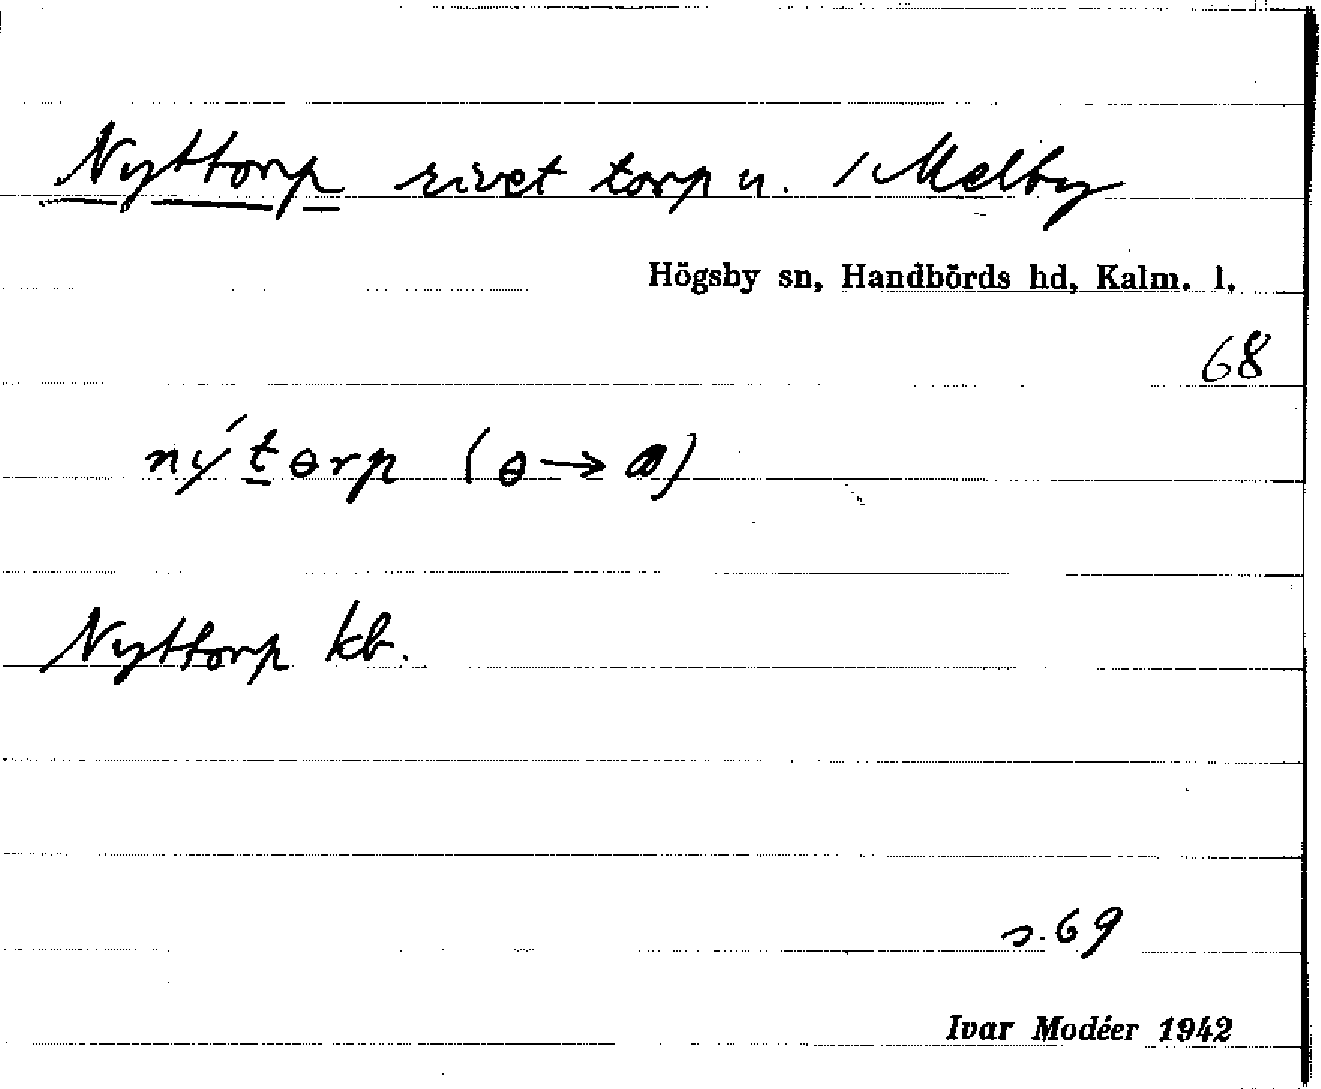 Nyttorp rivet torp u. / Melby
Högsby sn, Handbörds hd, Kalm. l.
68
ny´tɵrp (ɵ→
Nyttorp kb.
s. 69
Ivar Modéer 1942